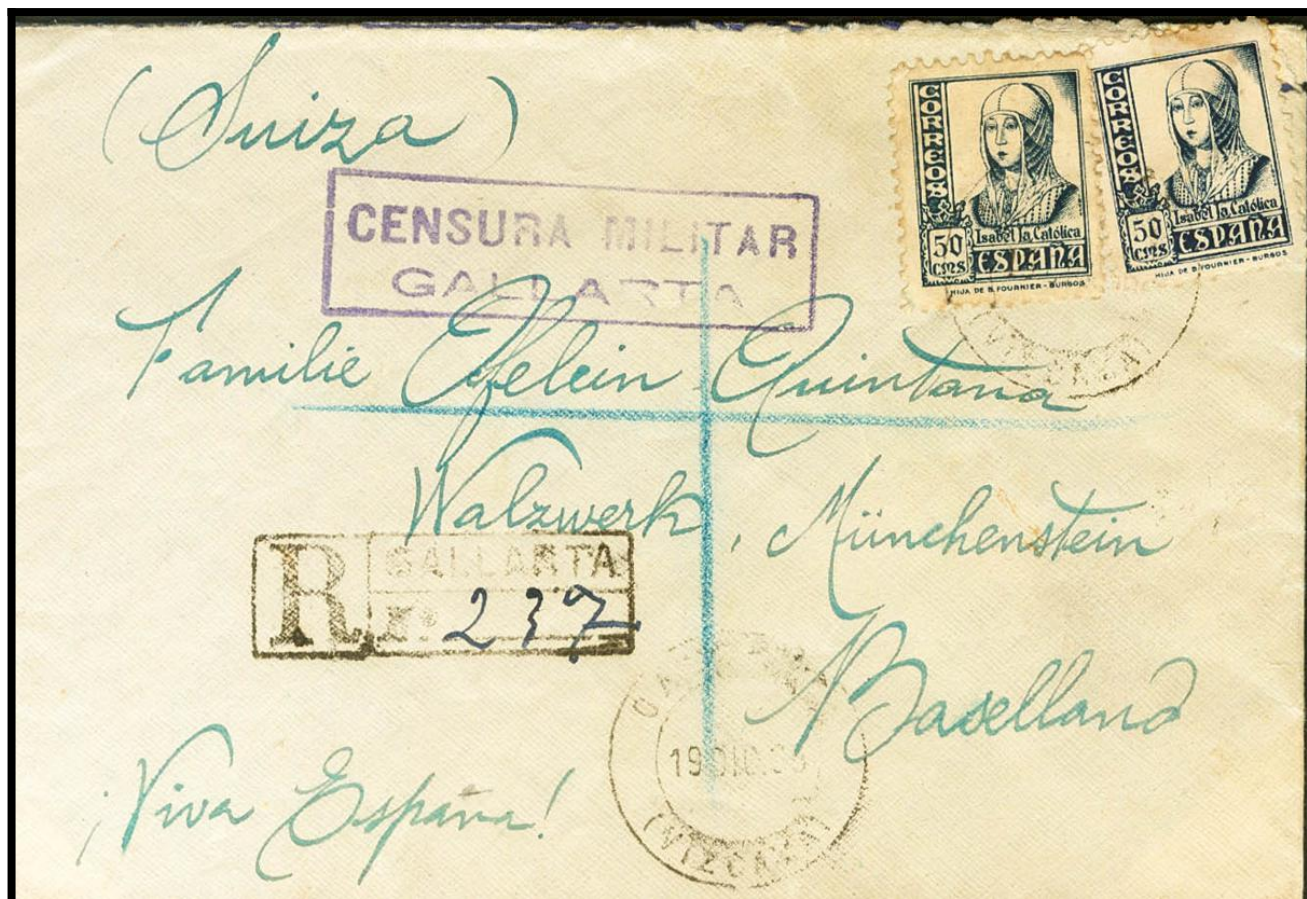 (Suiza)
CORREOS
50
CMS
Isabel la Católica
ESPAÑA
HIJA DE B. FOURNIER - BURGOS
CORREOS
50
CMS
Isabel la Católica
ESPAÑA
HIJA DE B. FOURNIER - BURGOS
CENSURA MILITAR
GALLARTA
(VIZCAYA)
Familie Quintana
Walzwerk, Münchenstein
R GALLARTA
n. 237
Baselland
GALLARTA
19 DIC.
(VIZCAYA)
¡Viva España!